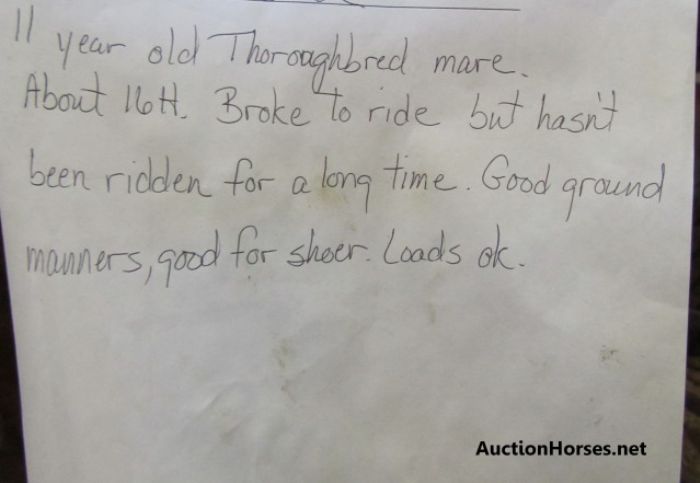 11 year old Thoroughbred mare.
About 16H. Broke to ride but hasn't
been ridden for a long time. Good ground
manners, good for shoer. Loads ok.
AuctionHorses.net